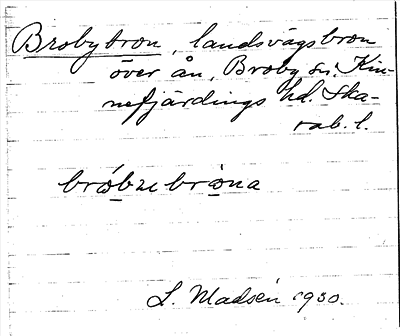 Brobybron, landsvägsbron
över ån, Broby sn. Kin-
nefjärdings hd. Ska-
rab. l.
L. Madsén 1930.